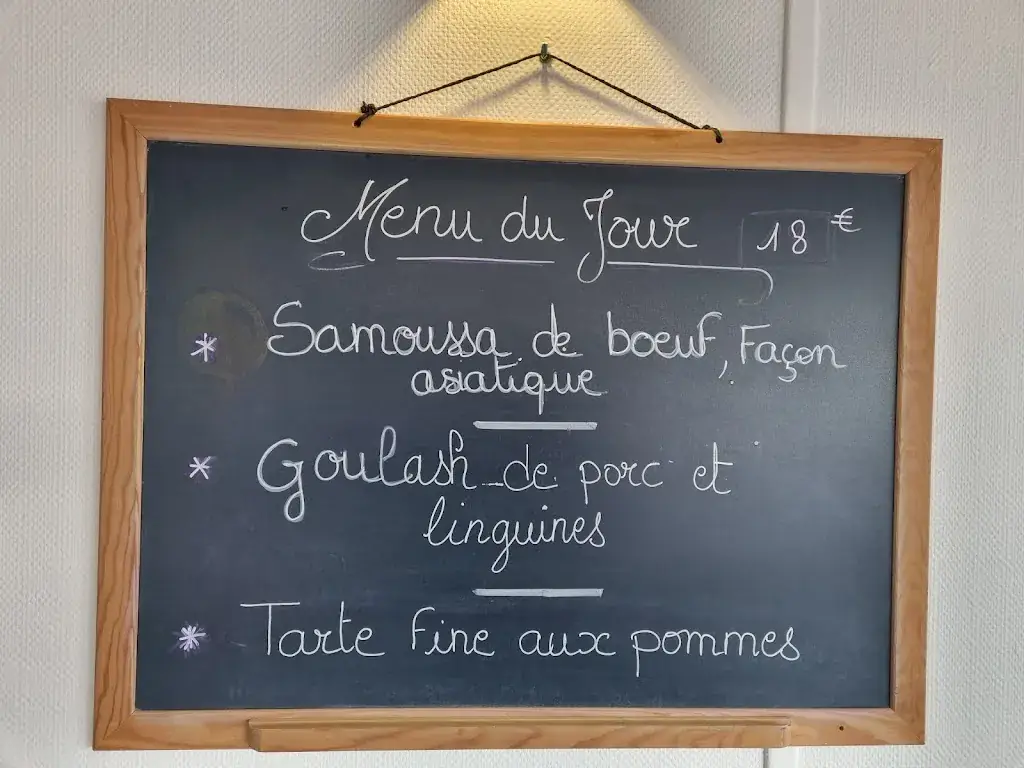 Menu du Jour 18 €
* Samoussa de boeuf, Façon
asiatique
* Goulash de porc et
linguines
* Tarte fine aux pommes